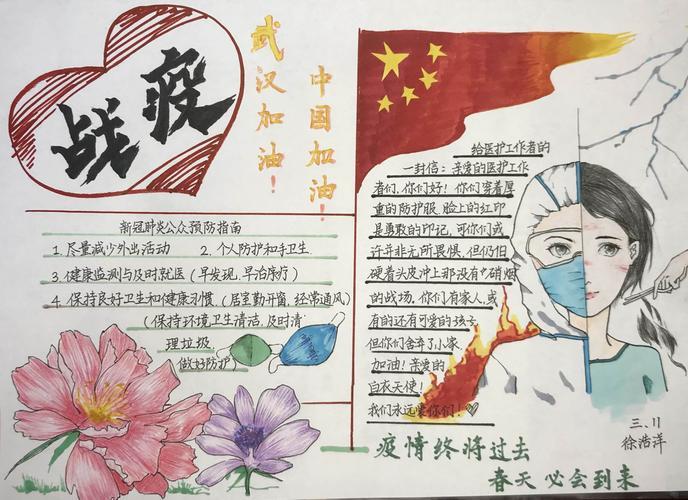 战疫
武汉加油！
中国加油！
新冠肺炎公众预防指南
1. 尽量减少外出活动 2. 个人防护和手卫生.
3. 健康监测与及时就医（早发现,早治疗）
4. 保持良好卫生和健康习惯（居室勤开窗,经常通风）
（保持环境卫生清洁,及时清
理垃圾,
做好防护）
给医护工作者的
一封信：亲爱的医护工作
者们,你们好！你们穿着厚
重的防护服,脸上的红印
是勇敢的印记,可你们或
许并非无所畏惧,但仍旧
硬着头皮冲上那没有硝烟
的战场,你们有家人,或
有的还有可爱的孩子
但你们舍弃了小家
加油！亲爱的
白衣天使！
我们永远爱你们！
疫情终将过去
春天必会到来
三、11
徐浩洋